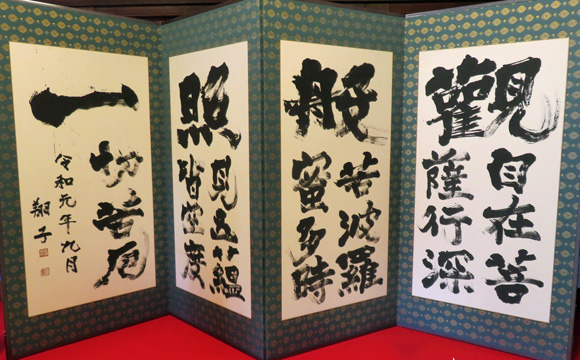 觀
自在菩
薩行深
般
若波羅
蜜多時
照
見五蘊
皆空度
一
切苦厄
令和元年九月
翔子